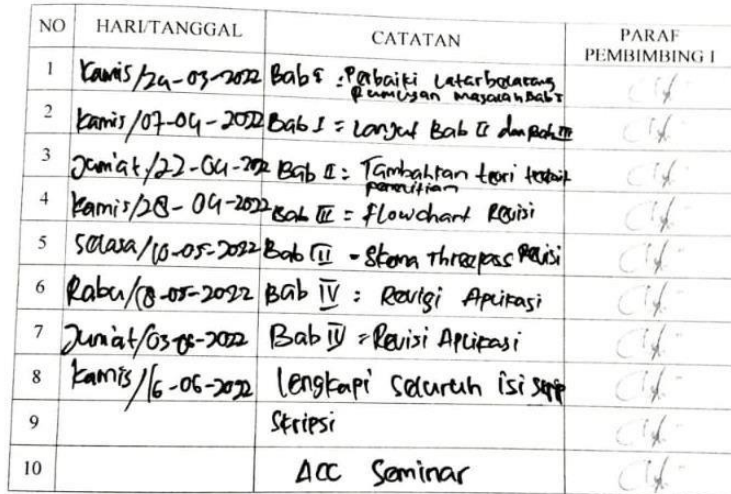 NO HARI/TANGGAL CATATAN PARAF PEMBIMBING I
1 Kamis/24-03-2022 Bab I : Perbaiki Latarbelakang
Rumusan masalah Bab I
2 Kamis/07-04-2022 Bab I = Lanjut Bab II dan Bab III
3 Jum'at/22-04-2022 Bab II : Tambahkan teori terkait
penelitian
4 Kamis/28-04-2022 Bab III = flowchart Revisi
5 Selasa/10-05-2022 Bab III - Skema Threepass Revisi
6 Rabu/18-05-2022 Bab IV : Revisi Aplikasi
7 Jum'at/03-06-2022 Bab IV = Revisi Aplikasi
8 Kamis/16-06-2022 lengkapi seluruh isi
9 Skripsi
10 ACC Seminar